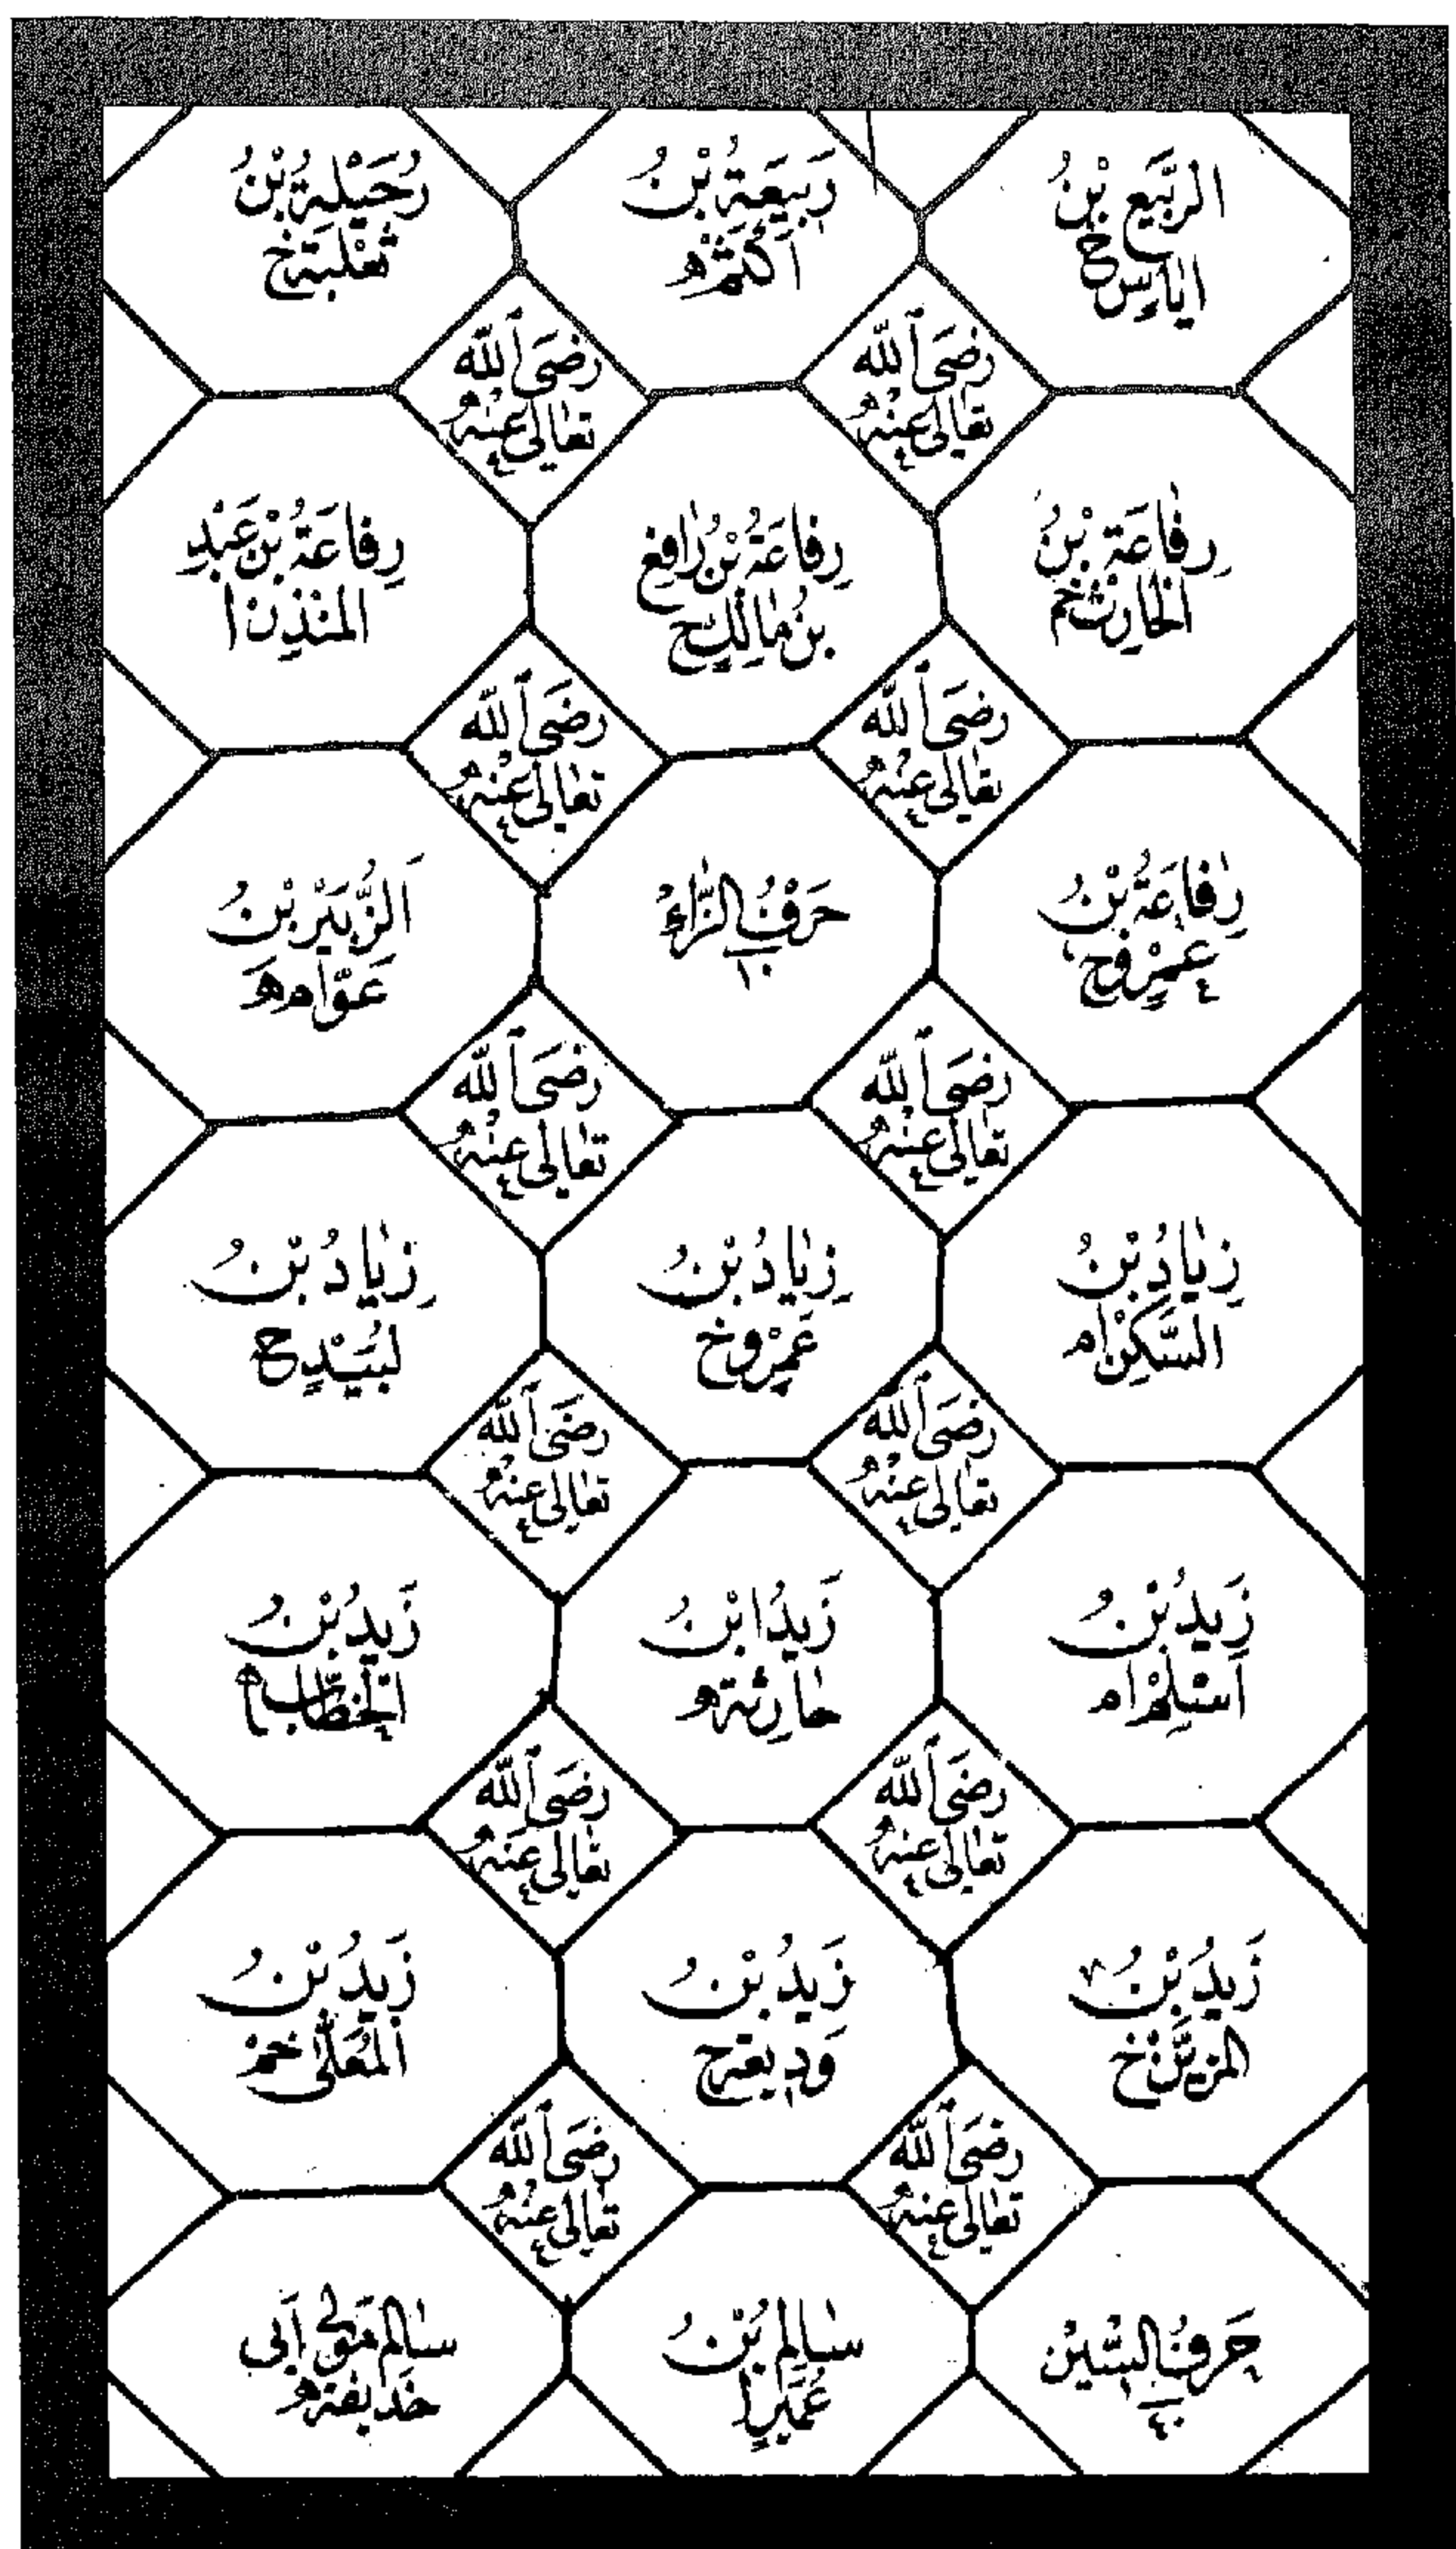 الرَّبِيعِ بْنُ
اِيَاسٍ خ
رَبِيعَةُ بْنُ
اَكْثَمْ هـ
رُحَيْلَةُ بْنُ
ثَعْلَبَةَ خ
رَضِىَ اللّٰه
تَعَالٰى عَنْهُ
رَضِىَ اللّٰه
تَعَالٰى عَنْهُ
رِفَاعَةُ بْنُ
الْحَارِثْ خم
رِفَاعَةُ بْنُ رَافِعِ
بْنُ مَالِكٍ خ
رِفَاعَةُ بْنُ عَبْدِ
الْمُنْذِرِ ا
رَضِىَ اللّٰه
تَعَالٰى عَنْهُ
رَضِىَ اللّٰه
تَعَالٰى عَنْهُ
رِفَاعَةُ بْنُ
عَمْرٍو خ
حَرْفُ الزَّاءِ
١٠
اَلزُّبَيْرُ بْنُ
عَوَّامْ هـ
رَضِىَ اللّٰه
تَعَالٰى عَنْهُ
رَضِىَ اللّٰه
تَعَالٰى عَنْهُ
زِيَادُ بْنُ
السَّكَنْ ام
زِيَادُ بْنُ
عَمْرٍو خ
زِيَادُ بْنُ
لَبِيْدٍ خ
رَضِىَ اللّٰه
تَعَالٰى عَنْهُ
رَضِىَ اللّٰه
تَعَالٰى عَنْهُ
زَيْدُ بْنُ
اَسْلَمْ ام
زَيْدُ ابْنُ
حَارِثَةَ هـ
زَيْدُ بْنُ
الْخَطَّابْ هـ
رَضِىَ اللّٰه
تَعَالٰى عَنْهُ
رَضِىَ اللّٰه
تَعَالٰى عَنْهُ
زَيْدُ بْنُ
الْمُزَيَّنْ خ
زَيْدُ بْنُ
وَدِيعَةَ خ
زَيْدُ بْنُ
الْمُعَلّٰى خم
رَضِىَ اللّٰه
تَعَالٰى عَنْهُ
رَضِىَ اللّٰه
تَعَالٰى عَنْهُ
حَرْفُ السِّيْنْ
٤٠
سَالِمُ بْنُ
عُمَيْرٍ ا
سَالِمْ مَوْلٰى اَبِى
حُذَيْفَةَ هـ